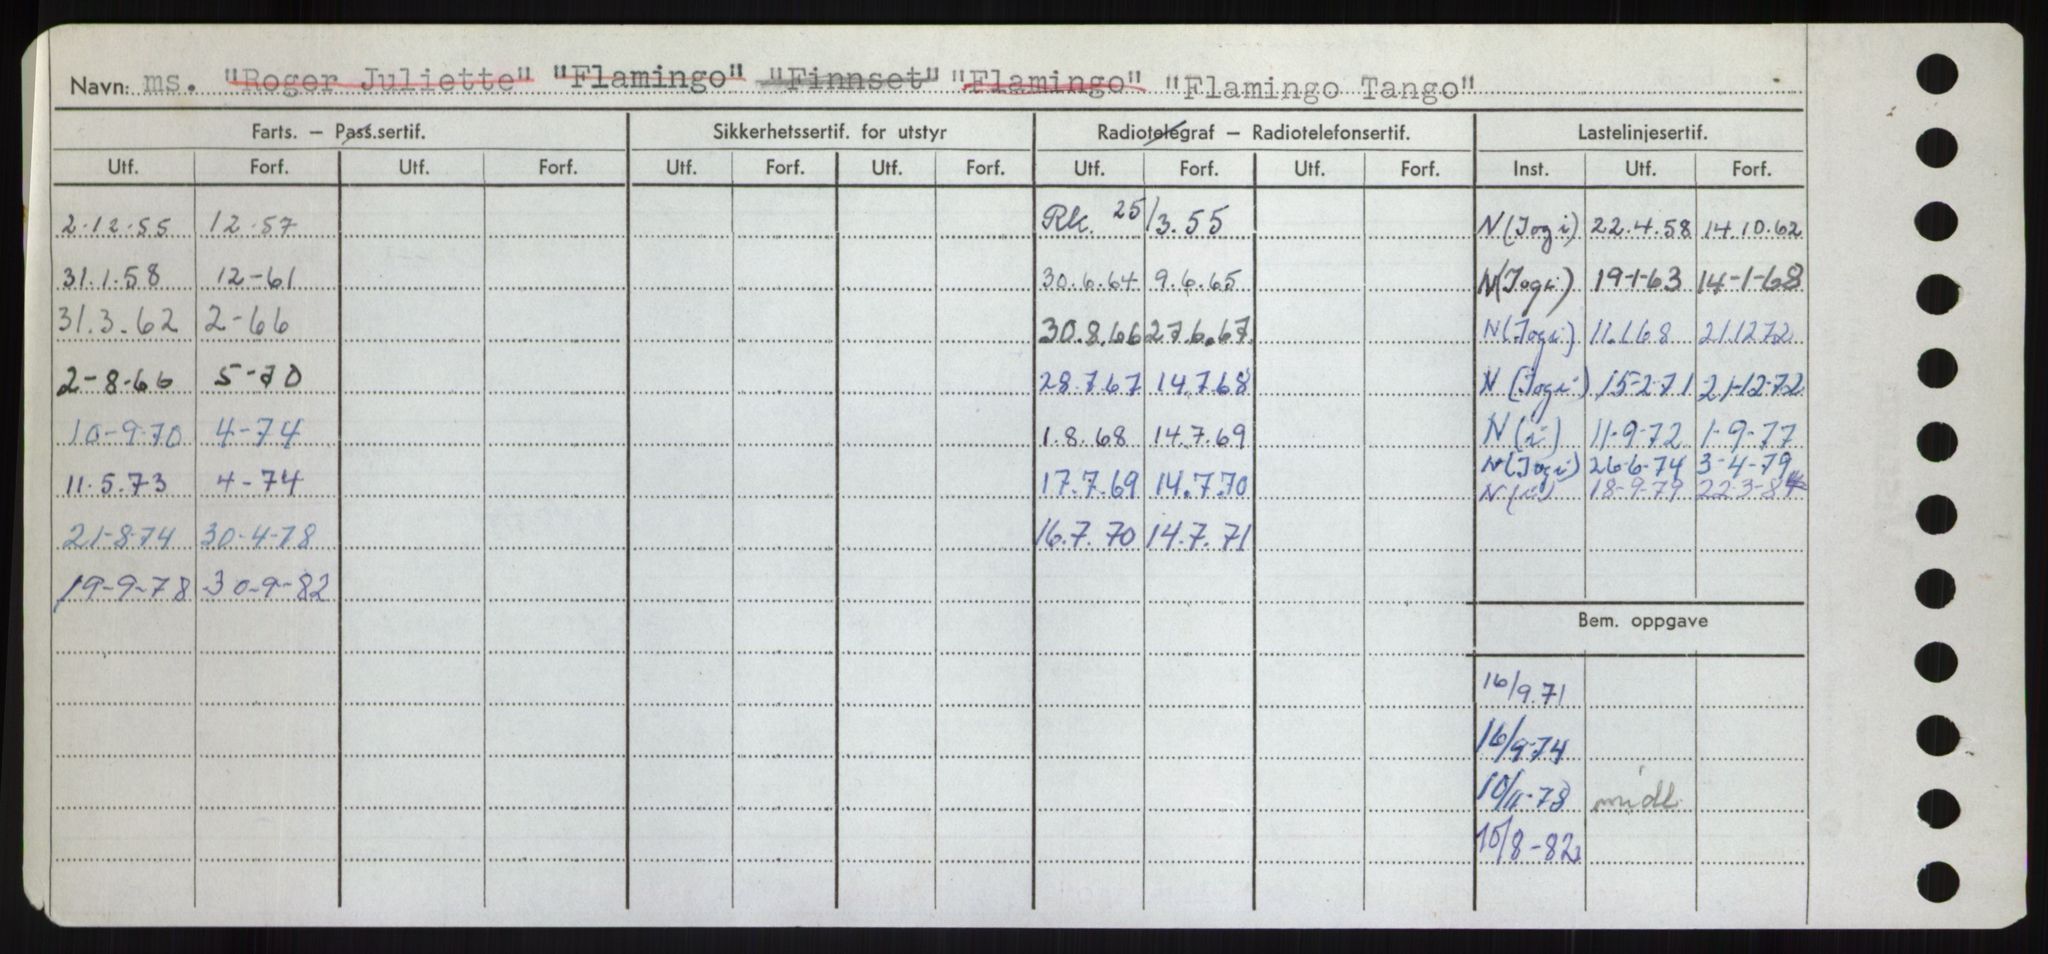 Navn: ms. "Roger Juliette" "Flamingo" "Finnset" "Flamingo" "Flamingo Tango"
Farts. – Pass.sertif. Sikkerhetssertif. for utstyr Radiotelegraf – Radiotelefonsertif. Lastelinjesertif.
Utf. Forf. Utf. Forf. Utf. Forf. Utf. Forf. Utf. Forf. Utf. Forf. Inst. Utf. Forf.
2.12.55 12.57 Rk. 25/3.55 N(Jogi) 22.4.58 14.10.62
31.1.58 12-61 30.6.64 9.6.65 N(Jogi) 19-1-63 14-1-68
31.3.62 2-66 30.8.66 27.6.67 N(Jogi) 11.1.68 21.12.72
2-8-66 5-70 28.7.67 14.7.68 N(Jogi) 15-2-71 21-12-72
10-9-70 4-74 1.8.68 14.7.69 N(i) 11-9-72 1-9-77
N(Jogi) 26-6-74 3-4-79
11.5.73 4-74 17.7.69 14.7.70 N(i) 18-9-79 22-3-84
21-8-74 30-4-78 16.7.70 14.7.71
19-9-78 30-9-82
Bem. oppgave
16/9.71
16/9-74
10/11-78 midl.
10/8-82